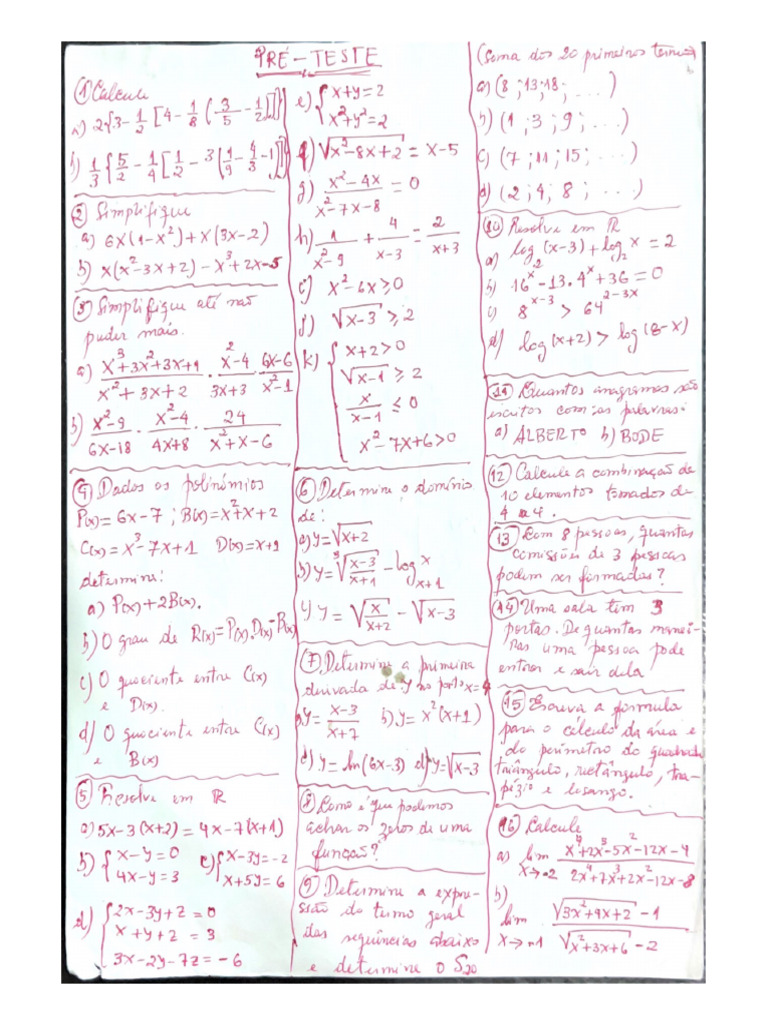 PRÉ-TESTE
① Calcule
a) 2{3-1/2[4-1/8(3/5-1/2)]}
b) 1/3{5/2-1/4[1/2-3(1/9-4/3-1)]}
② Simplifique
a) 6x(1-x²)+x(3x-2)
b) x(x²-3x+2)-x³+2x-5
③ Simplifique até não
puder mais.
a) (x³+3x²+3x+1)/(x²+3x+2) · (x²-4)/(3x+3) · (6x-6)/(x²-1)
b) (x²-9)/(6x-18) · (x²-4)/(4x+8) · 24/(x²+x-6)
④ Dados os polinómios
P(x)=6x-7; B(x)=x²+x+2
C(x)=x³-7x+1 D(x)=x+2
determine:
a) P(x)+2B(x).
b) O grau de R(x)=P(x).D(x)-B(x)
c) O quociente entre C(x)
e D(x).
d) O quociente entre C(x)
e B(x)
⑤ Resolve em R
a) 5x-3(x+2)=4x-7(x+1)
b) {x-y=0 c) {x-3y=-2
4x-y=3 x+5y=6
d) {2x-3y+z=0
x+y+z=3
3x-2y-7z=-6
e) {x+y=2
x²+y²=2
f) √(x²-8x+2)=x-5
g) (x²-4x)/(x²-7x-8)=0
h) 1/(x²-9)+4/(x-3)=2/(x+3)
i) x²-6x≥0
j) √(x-3)≥2
k) {x+2>0
√(x-1)≥2
x/(x-1)≤0
x²-7x+6>0
⑥ Determine o domínio
de:
a) y=√(x+2)
b) y=³√((x-3)/(x+1))-log x x+1
c) y=√(x/(x+2))-√(x-3)
⑦ Determine a primeira
derivada de y no pᵗᵒ x=4
a) y=(x-3)/(x+7) b) y=x²(x+1)
c) y=ln(6x-3) d) y=√(x-3)
⑧ Como é que podemos
achar os zeros de uma
função?
⑨ Determine a expre-
ssão do termo geral
das sequências abaixo
e determine o S₂₀
(Soma dos 20 primeiros termos)
a) (8;13;18; ...)
b) (1;3;9; ...)
c) (7;11;15; ...)
d) (2;4;8; ...)
⑩ Resolve em R
a) log₂(x-3)+log₂x=2
b) 16ˣ-13.4ˣ+36=0
c) 8ˣ⁻³>64²⁻³ˣ
d) log(x+2)>log(8-x)
⑪ Quantos anagramas são
escritos com as palavras:
a) ALBERTO b) BODE
⑫ Calcule a combinação de
10 elementos tomados de
4 a 4.
⑬ Com 8 pessoas, quantas
comissões de 3 pessoas
podem ser formadas?
⑭ Uma sala tem 3
portas. De quantas manei-
ras uma pessoa pode
entrar e sair dela
⑮ Escreva a formula
para o cálculo da área e
do perímetro do quadrado
triângulo, rectângulo, tra-
pézio e losango.
⑯ Calcule
a) lim x→-2 (x⁴+2x³-5x²-12x-4)/(2x⁴+7x³+2x²-12x-8)
b)
lim x→-1 (√(3x²+4x+2)-1)/(√(x²+3x+6)-2)